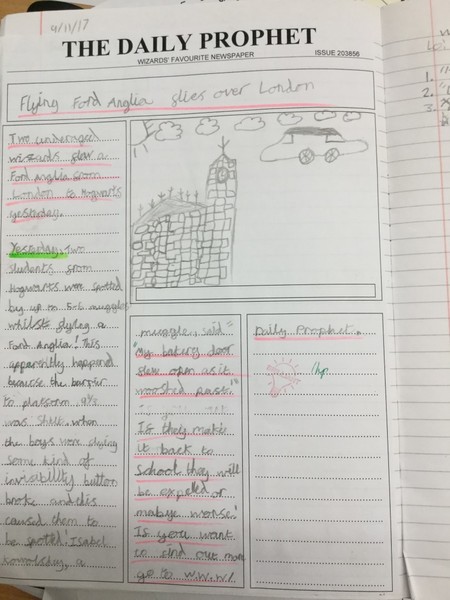 9/11/17
THE DAILY PROPHET
WIZARDS' FAVOURITE NEWSPAPER
ISSUE 203856
Flying Ford Anglia flies over London
Two underaged
wizards flew a
Ford Anglia from
London to Hogwarts
yesterday.
Yesterday, two
students from
Hogwarts were spotted
by up to 5-6 muggles
whilst flying a
Ford Anglia! This
apparently happened
because the barrier
to platform 9¾
was shut. when
the boys were flying
some kind of
invisability button
broke and this
caused them to
be spotted! Isabel
a
muggle, said "
My bakery door
flew open as it
past."
If they make
it back to
school they will
be expelled or
mabye worse!
If you want
to find out more
go to W.W.W.
Daily Prophet.
1.
2.
3.